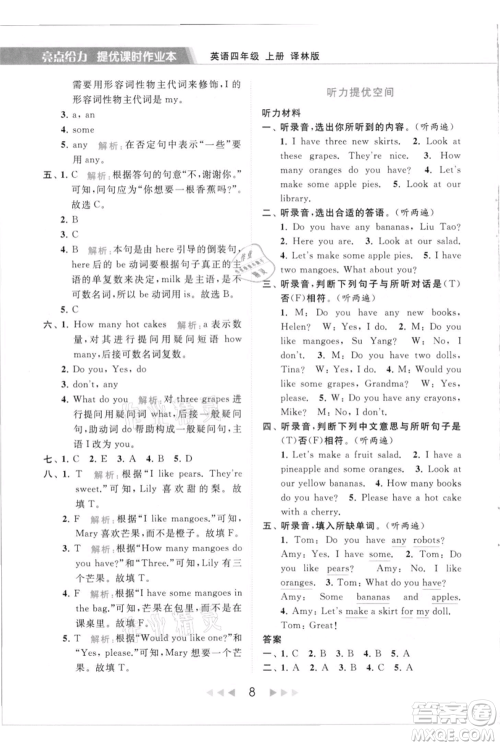 亮点给力 提优课时作业本 英语四年级 上册 译林版
需要用形容词性物主代词来修饰,故此
处用形容词性物主代词my。
3. a, an
4. some
5. any 解析:在否定句中表示“一些”时要
用any。
五、1. C 解析:根据答句的意思“不,谢谢你。”
可知,问句应为“你想要一根香蕉吗?”
故选C。
2. B
3. C
4. B 解析:本句是由here引导的倒装句,
句中的be动词要根据句子真正的主语
的单复数来变化,milk是不可数名词,
所以be动词应用is。故选B。
六、1. How many hot cakes 解析:a表示数
量,提问数量时应用疑问短语how
many,后接可数名词复数。
2. Do you, Yes, do
3. don't, any
4. What do you 解析:对three grapes进
行提问用疑问词what,后接一般疑问
句,助动词用do,在变一般疑问句时,主
语I改为you。
七、1. C 2. E 3. A 4. B 5. D
八、1. T 解析:根据“I like pears. They're
sweet.”可知,Lily喜欢甜的梨。故
填T。
2. F 解析:根据“I like mangoes.”可知,
Mary喜欢芒果而不是橙子。故填F。
3. T 解析:根据“How many mangoes do
you have?”和“Three.”可知,Lily有三
个芒果。故填T。
4. F 解析:根据“I have some mangoes in
the bag.”可知,芒果在包里而不是在
课桌里。故填F。
5. T 解析:根据“Would you like one?”
和“Yes, please.”可知,Mary想要一个
芒果。故填T。
听力提优空间
听力材料
一、听录音,选出你所听到的内容。(听两遍)
1. I like grapes. 2. I have three new skirts.
3. I have some pears. They're nice.
4. Let's make some cakes. 5. Look at our
library.
二、听录音,选出合适的答语。(听两遍)
1. Do you have any bananas, Liu Tao?
2. Here you are. 3. Look at our salad.
4. Let's make a salad. 5. I have some
mangoes. What about you?
三、听录音,判断下列句子与所听对话是(T)
否(F)相符。(听两遍)
1. M: Do you have any new books,
Helen? W: Yes, I do. 2. M: How
beautiful, Su Yang? W: Thank you.
3. W: Do you have any new skirts,
Yang Ling? W: No, I don't. 4. M: Would
you like some grapes, Grandma? W: Yes,
please. 5. W: Do you have any bananas,
Mike? M: No, I don't.
四、听录音,判断下列中文意思与所听句子是
(T)否(F)相符。(听两遍)
1. Let's make a fruit salad. 2. I don't
have any pears, but I have some oranges.
3. Do you have any grapes? 4. Look at
our yellow bananas. 5. I have a hot cake
with a cherry.
五、听录音,填入所缺单词。(听两遍)
1. Tom: Do you have any robots?
Amy: Yes, I have some. 2. Tom:
Amy, I have some bananas and apples.
3. Amy: Let's make a skirt for my doll.
Tom: Great!
答案
一、1. C 2. A 3. C 4. B 5. B
二、1. A 2. A 3. C 4. B 5. C
8